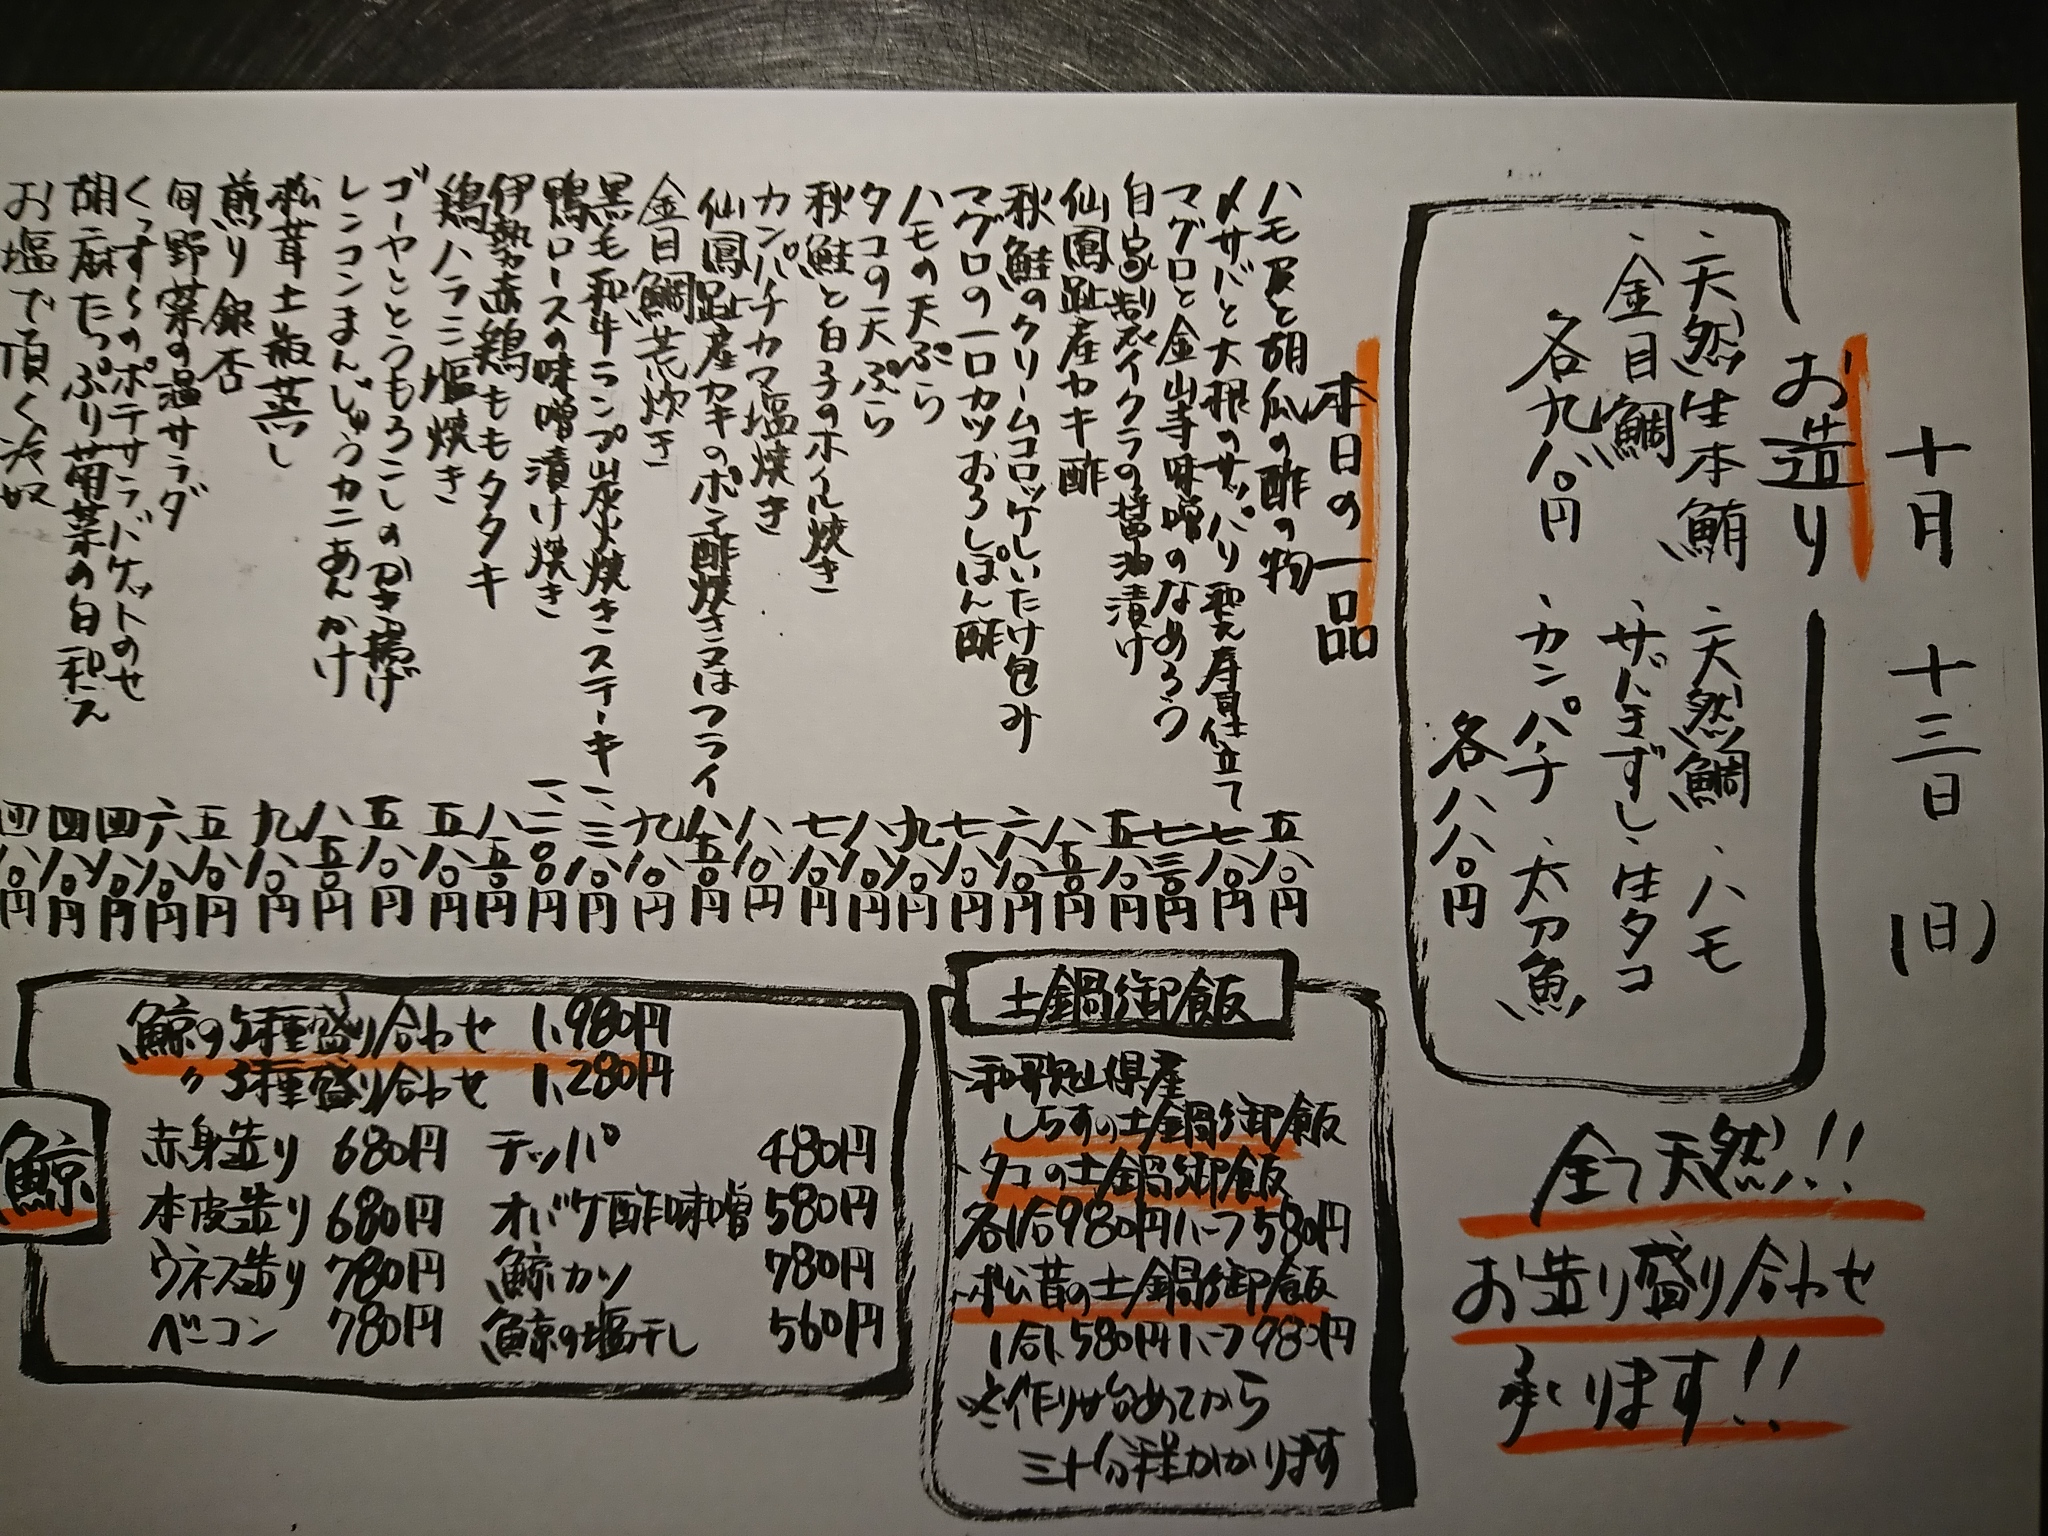 十月 十三日 (日)
お造り
、天然生本鮪 、天然鯛 、ハモ
、金目鯛 、サメきずし、生タコ
各九八〇円 、カンパチ 、太刀魚
各八八〇円
全て天然!!
お造り盛り合わせ
承ります!!
本日の一品
ハモ皮と胡瓜の酢の物 五八〇円
〆サバと大根のサッパリ雲寿貝仕立て 七八〇円
マグロと金山寺味噌のなめろう 七三〇円
自家製イクラの醤油漬け 五八〇円
仙鳳趾産カキ酢 八五〇円
秋鮭のクリームコロッケしいたけ包み 六八〇円
マグロの一口カツおろしぽん酢 七八〇円
ハモの天ぷら 九八〇円
タコの天ぷら 八八〇円
秋鮭と白子のホイル焼き 七八〇円
カンパチカマ塩焼き 八八〇円
仙鳳趾産カキのポン酢焼き又はフライ 八五〇円
金目鯛荒炊き 九八〇円
黒毛和牛ランプ炭火焼きステーキ 一、三八〇円
鴨ロースの味噌漬け焼き 一、二〇〇円
伊勢赤鶏ももタタキ 八五〇円
鶏ハラミ塩焼き 五八〇円
ゴーヤととうもろこしのかき揚げ 五八〇円
レンコンまんじゅうカニあんかけ 八五〇円
松茸土瓶蒸し 九八〇円
煎り銀杏 五八〇円
旬野菜の温サラダ 六八〇円
くっすぃのポテサラバケットのせ 四八〇円
胡麻たっぷり菊菜の白和え 四八〇円
お塩で頂く冷奴 四八〇円
土鍋御飯
、和歌山県産
しらすの土鍋御飯
、タコの土鍋御飯
各1合980円ハーフ580円
、松茸の土鍋御飯
1合1,580円ハーフ980円
※作り始めてから
三十分程かかります
鯨
鯨の5種盛り合わせ 1,980円
〃3種盛り合わせ 1,280円
赤身造り 680円 テッパ 480円
本皮造り 680円 オバケ酢味噌 580円
ウネス造り 780円 鯨カツ 780円
ベーコン 780円 鯨の塩干し 560円